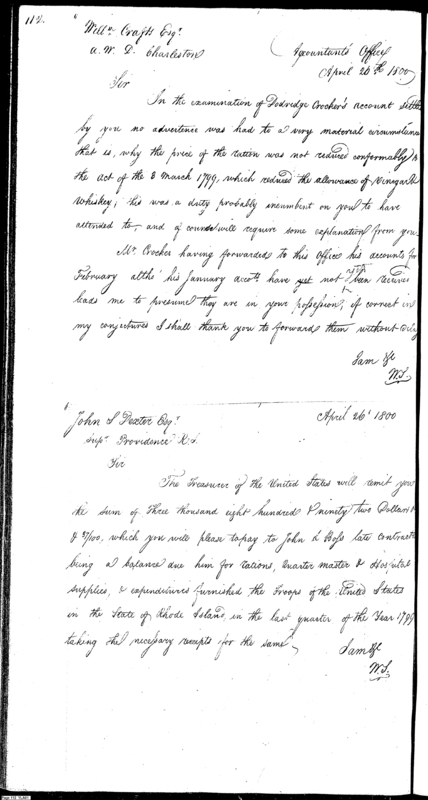 112.
Will.m Crafts Esq.r
A. W. D. Charleston
Accountants Office
April 26th 1800
Sir
In the examination of Dodredge Crocker's account settle
by you no advertence was had to a very material circumstance
that is, why the price of the ration was not reduced conformably to
the act of the 3 March 1799, which reduced the allowance of Vinegar &
Whiskey; this was a duty probably incumbent on you to have
attended to, and of course will require some explanation from you
Mr. Crocker having forwarded to this Office his accounts for
February altho' his January accots. have yet not been received
leads me to presume they are in your possession; if correct in
my conjectures I shall thank you to forward them without delay
I am Sir
W. S.
John S Dexter Esq.r
April 26' 1800
Supr. Providence R. I.
Sir
The Treasurer of the United States will remit you
the sum of three thousand eight hundred & ninety two Dollars &
/100, which you will please to pay to John L Boss late contractor
being a balance due him for rations, Quarter master & Hospital
supplies, & expenditures furnished the Troops of the United States
in the State of Rhode Island, in the last quarter of the Year 1799
taking the necessary receipts for the same.
I am Sir
W. S.